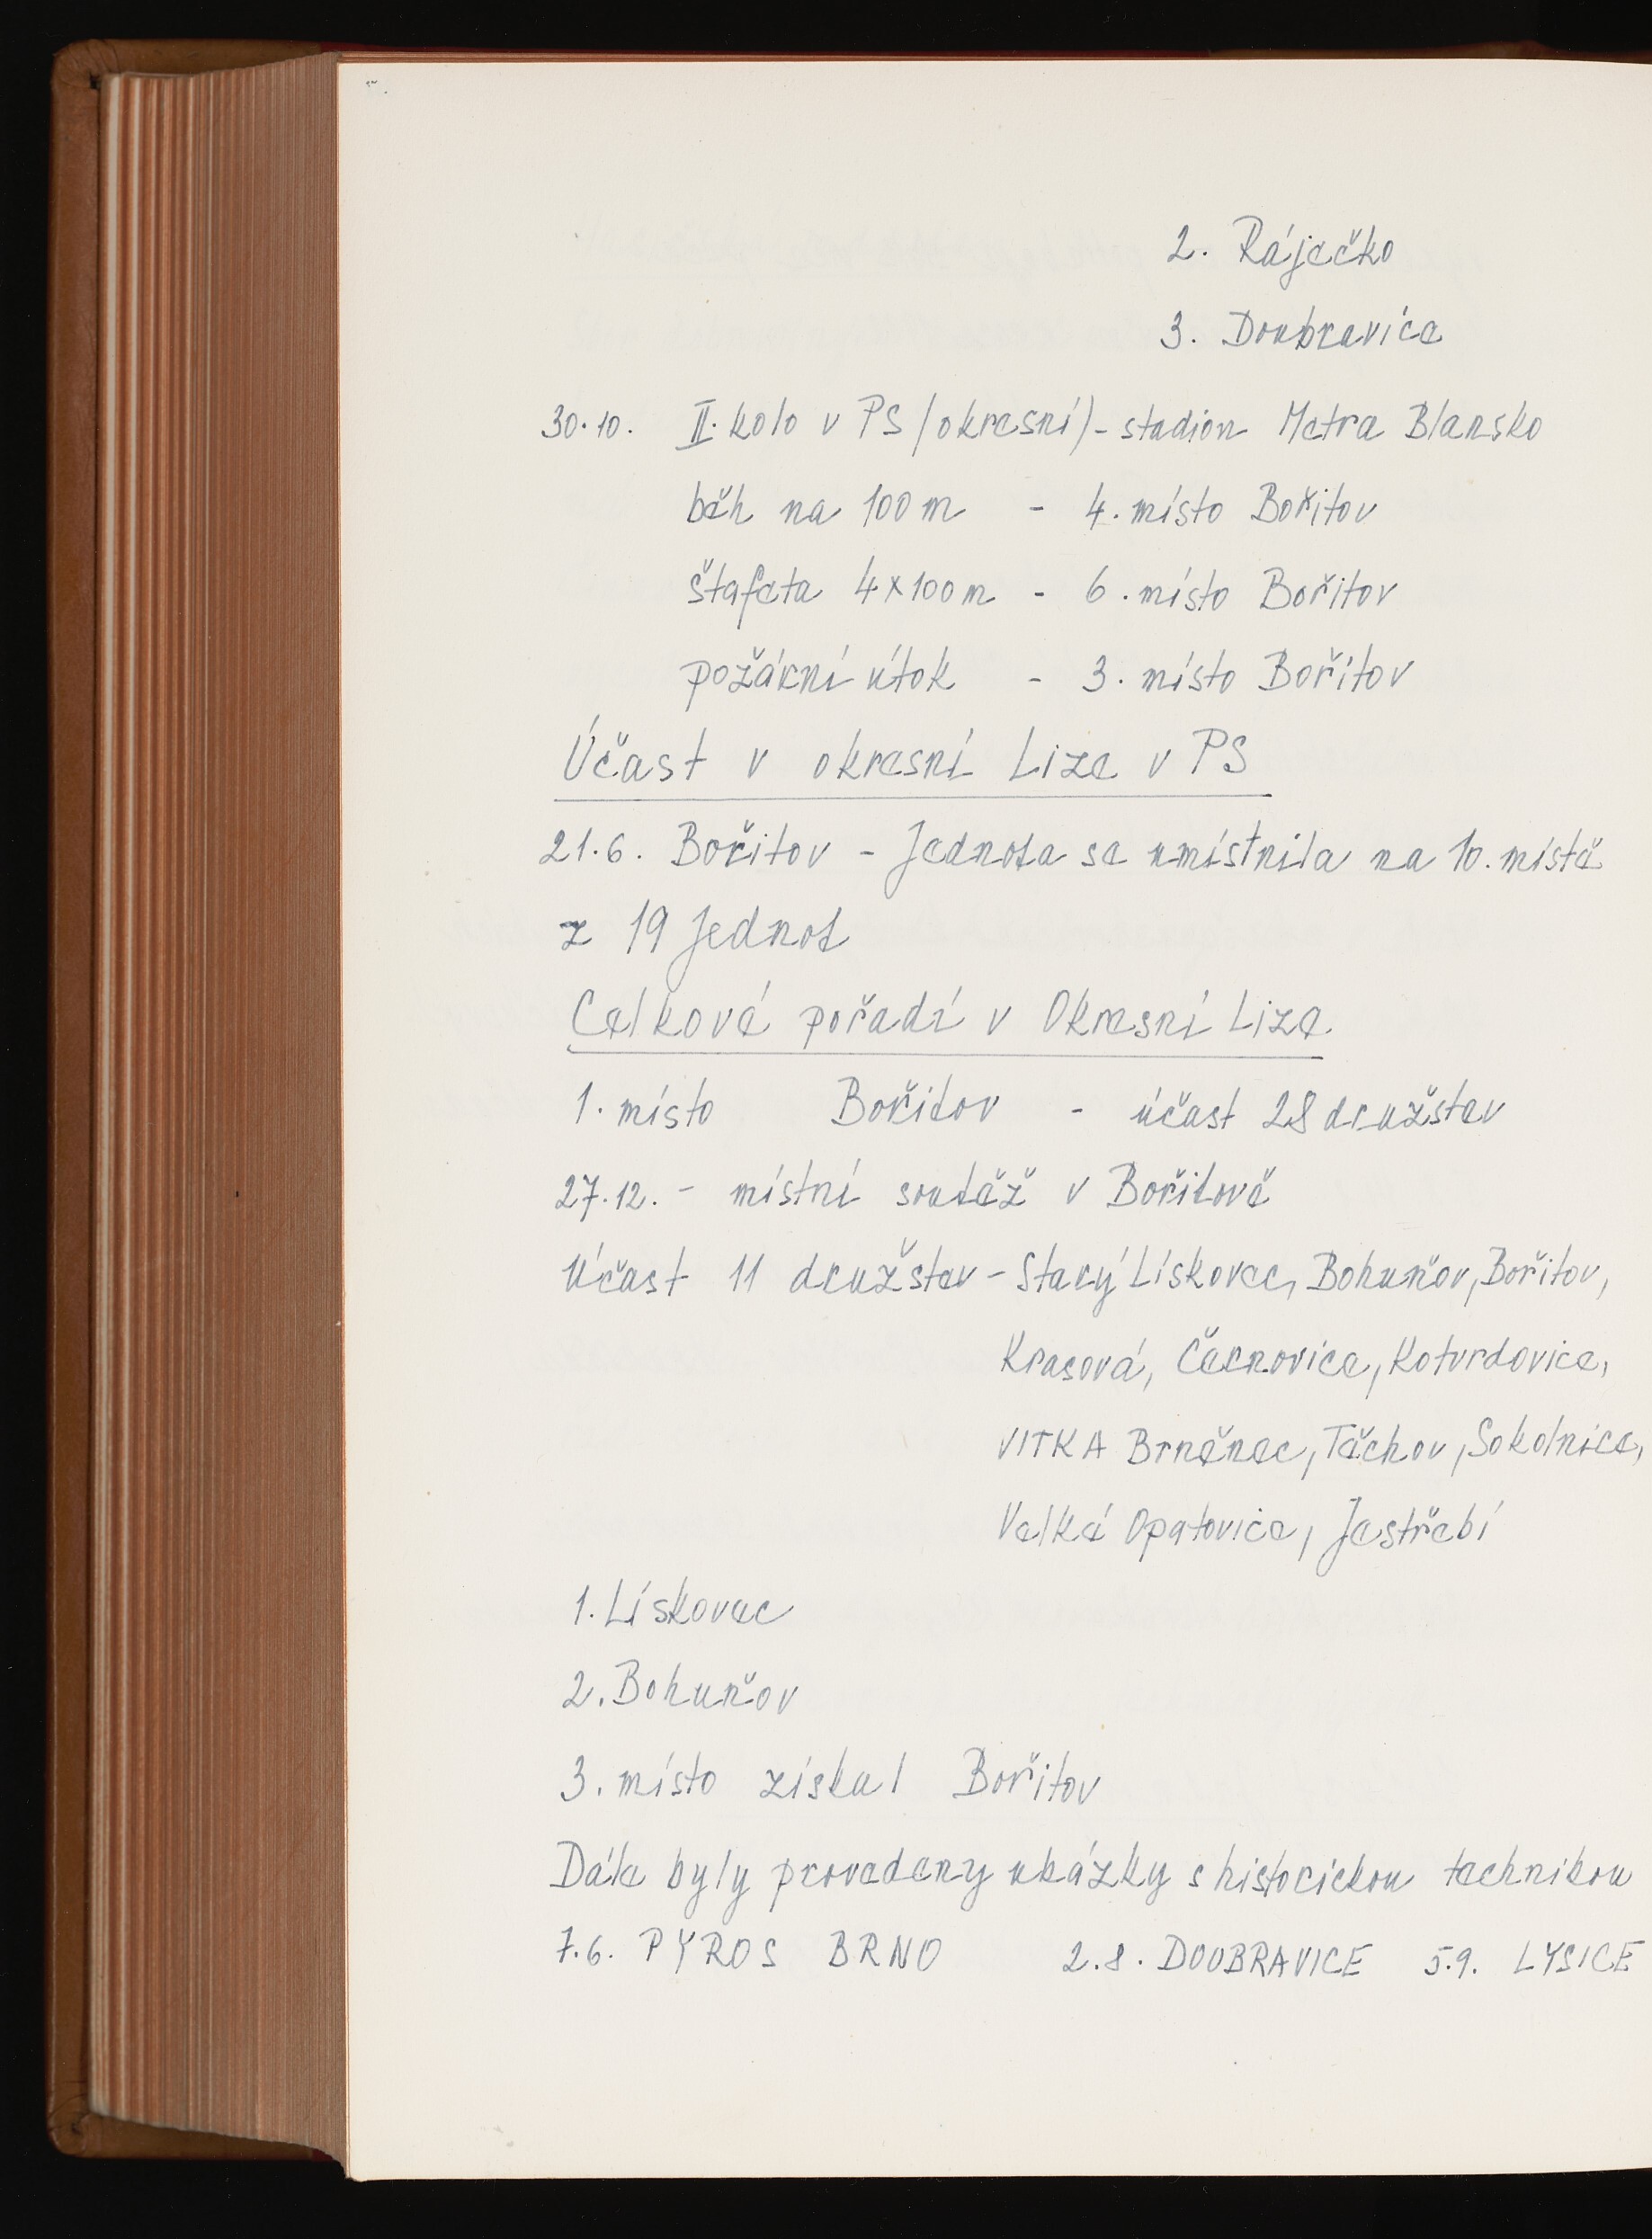 2. Ráječko
3. Doubravice
30.10. II. kolo v PS (okresní) - stadion Metra Blansko
běh na 100 m - 4. místo Bořitov
štafeta 4x100 m - 6. místo Bořitov
požární útok - 3. místo Bořitov
Účast v okresní Lize v PS
21.6. Bořitov - Jednota se umístnila na 10. místě
z 19 Jednot
Celkové pořadí v Okresní Lize
1. místo Bořitov - účast 28 družstev
27.12. - místní soutěž v Bořitově
Účast 11 družstev - Starý Lískovec, Bohuňov, Bořitov,
Krasová, Černovice, Kotvrdovice,
VITKA Brněnec, Těchov, Sokolnice,
Velké Opatovice, Jestřebí
1. Lískovec
2. Bohuňov
3. místo získal Bořitov
Dále byly provedeny ukázky s historickou technikou
7.6. PYROS BRNO 2.8. DOUBRAVICE 5.9. LYSICE